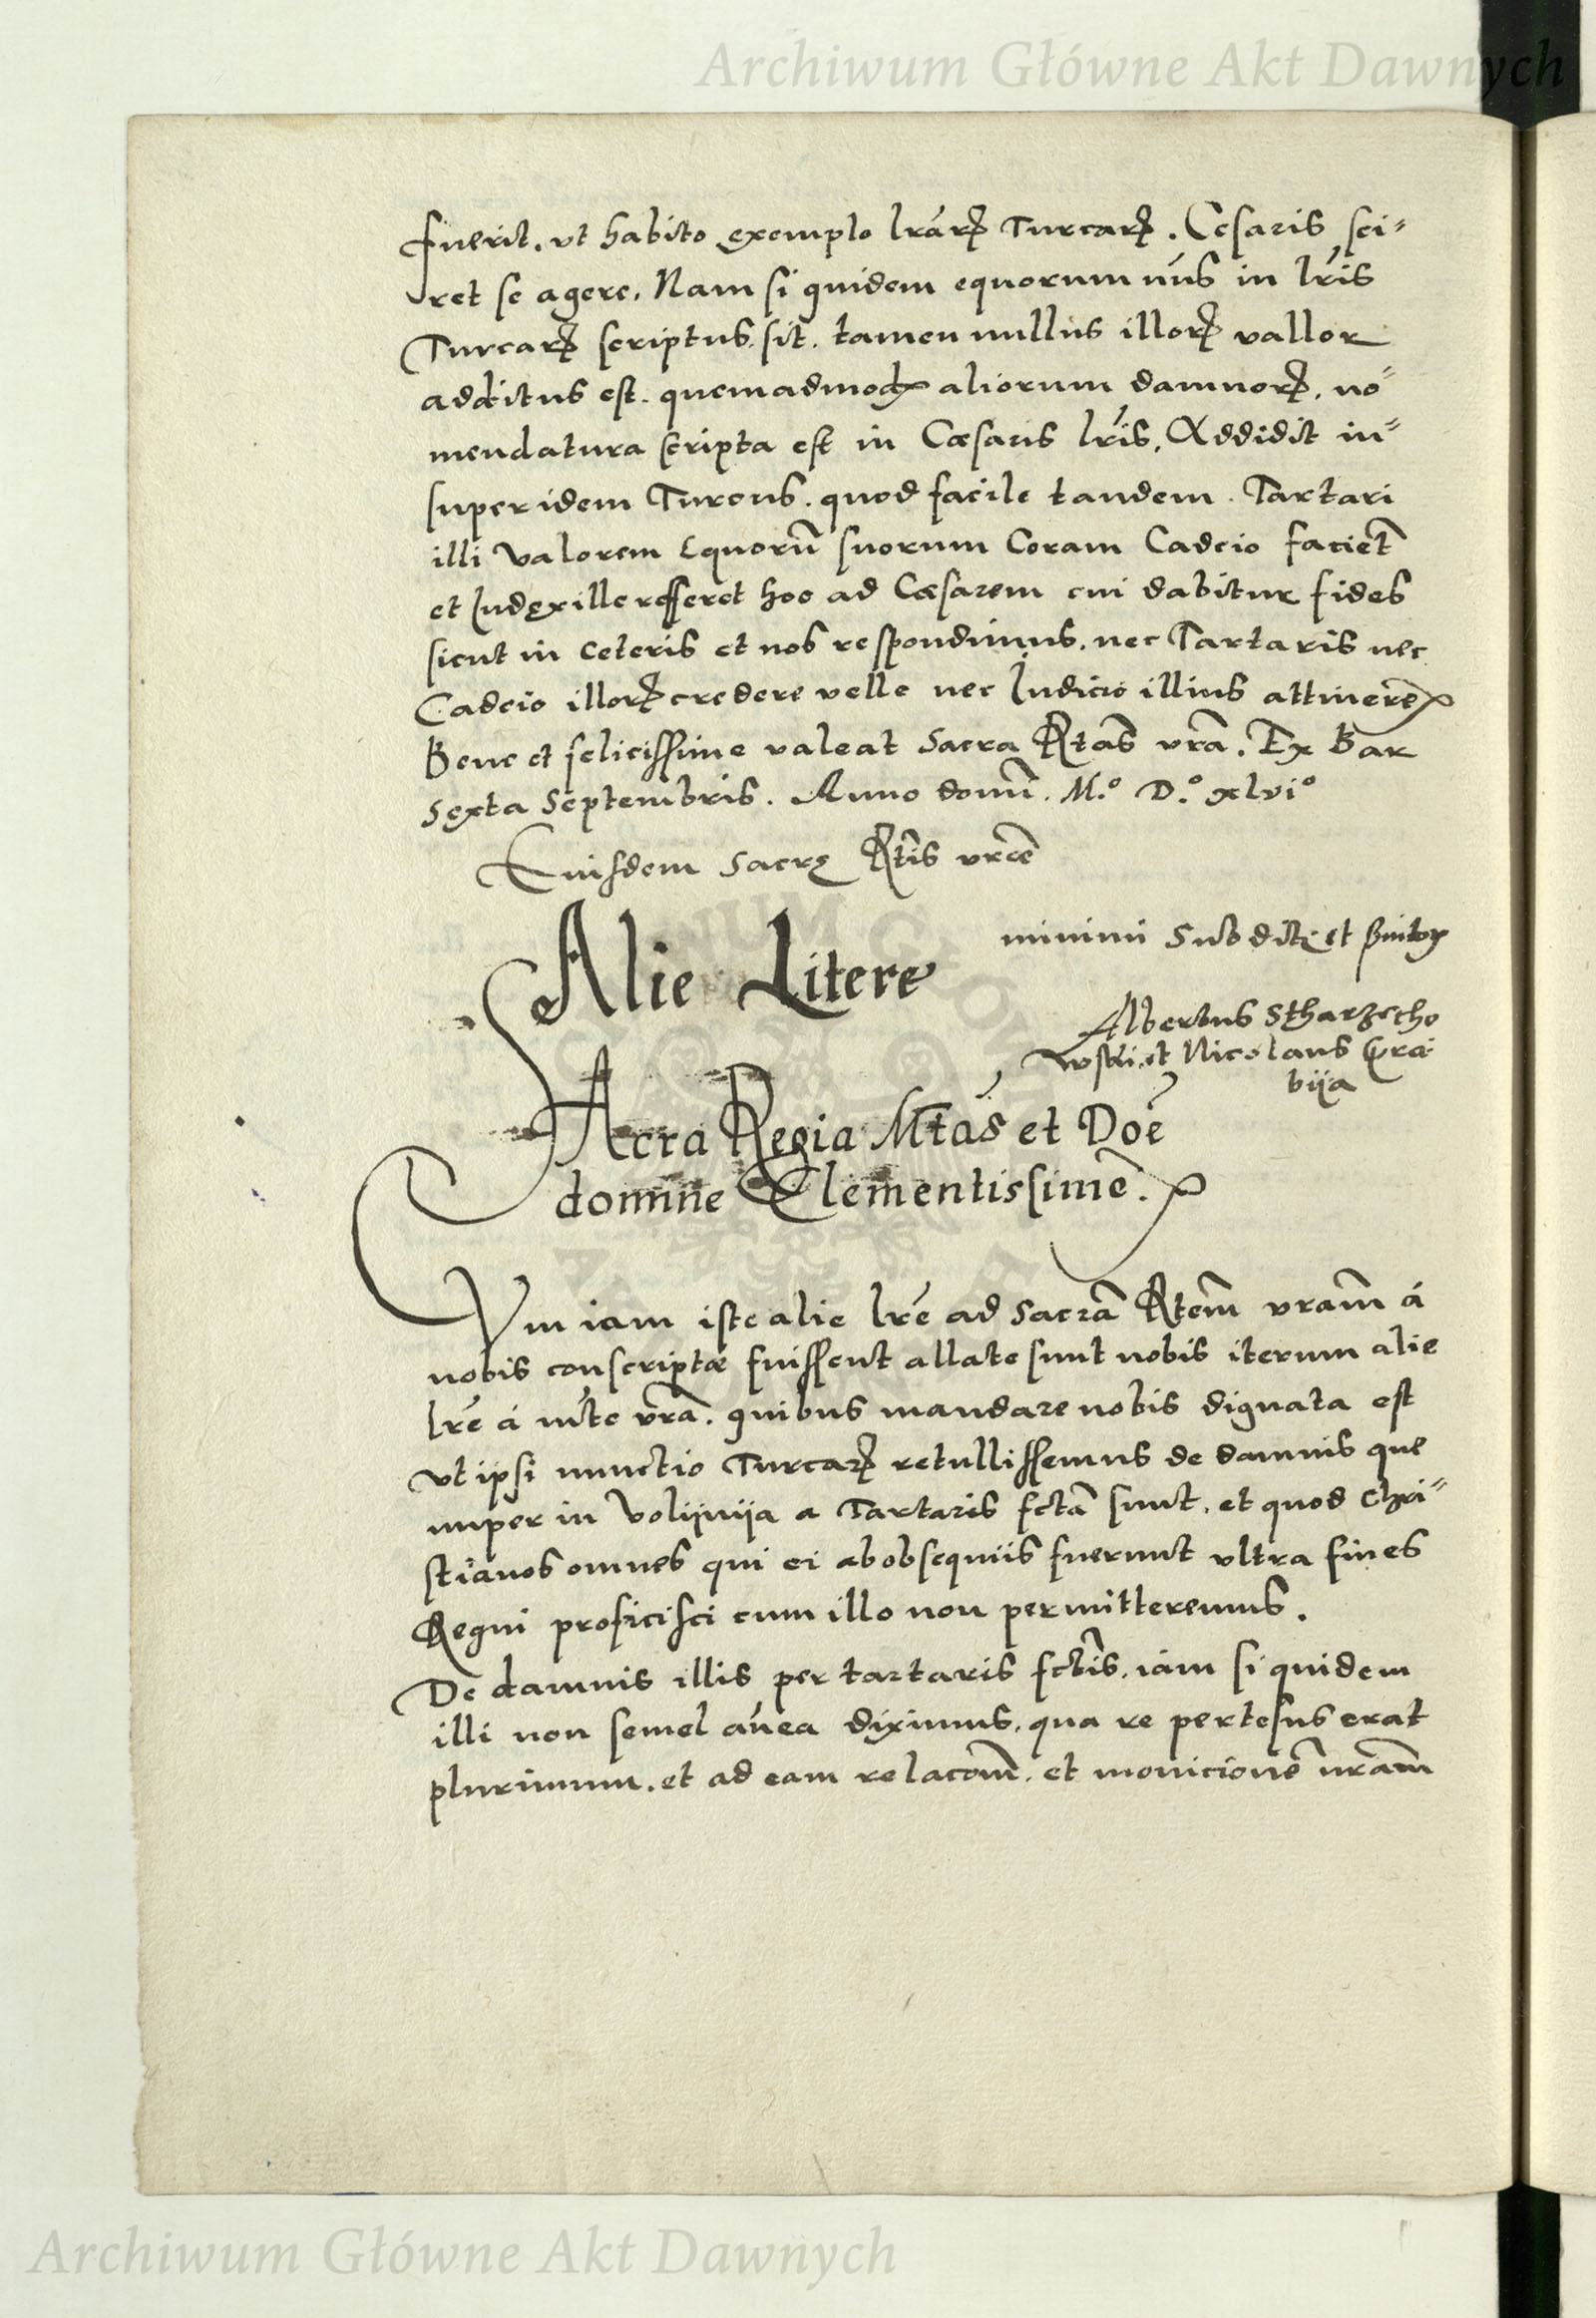 Archiwum Główne Akt Dawnych
fuerit. vt habito exemplo lrãrꝝ Turcarꝝ. Cesaris sci=
ret se agere. Nam si quidem equorum nũs in lris
Turcarꝝ scriptus. sit. tamen nullus illorꝝ vallor
additus est. quemadmodũ aliorum damnorꝝ. no=
mendatura scripta est in Cæsaris lris. Addidit in=
super idem Turcus. quod facile tandem. Tartari
illi valorem Equorũ suorum Coram Cadcio facient
et Iudex ille refferet hoc ad Cæsarem cui dabitur fides
sicut in ceteris et nos respondimus. nec Tartaris nec
Cadcio illorꝝ credere velle nec Iudicio illius attinere
Bene et felicissime valeat Sacra Rtãs vrã. Ex Bar
Sexta Septembris. Anno domi. M.º D.º xlviº
Eiusdem Sacrę Rtis vrae
minimi Subditi et
Alie Litere
Albertus Stharzecho
wski. et Nicolaus Cra
biia
SAcra Regia Mtãs et Doe
domine Clementissime.
CVm iam iste alie lrẽ ad Sacrã Rtem vram á
nobis conscriptæ fuissent allate sunt nobis iterum alie
lrẽ á mte vrã. quibus mandare nobis dignata est
vt ipsi nunctio Turcarꝝ retullissemus de damnis que
nuper in Volijnija a Tartaris fctã sunt. et quod Chri=
stianos omnes qui ei ab obsequiis fuerunt vltra fines
Regni proficisci cum illo non permitteremus.
De damnis illis per tartaris fctis. iam si quidem
illi non semel añea diximus. qua re pertesus erat
plurimum. et ad eam relacom. et monicionẽ nram
Archiwum Główne Akt Dawnych